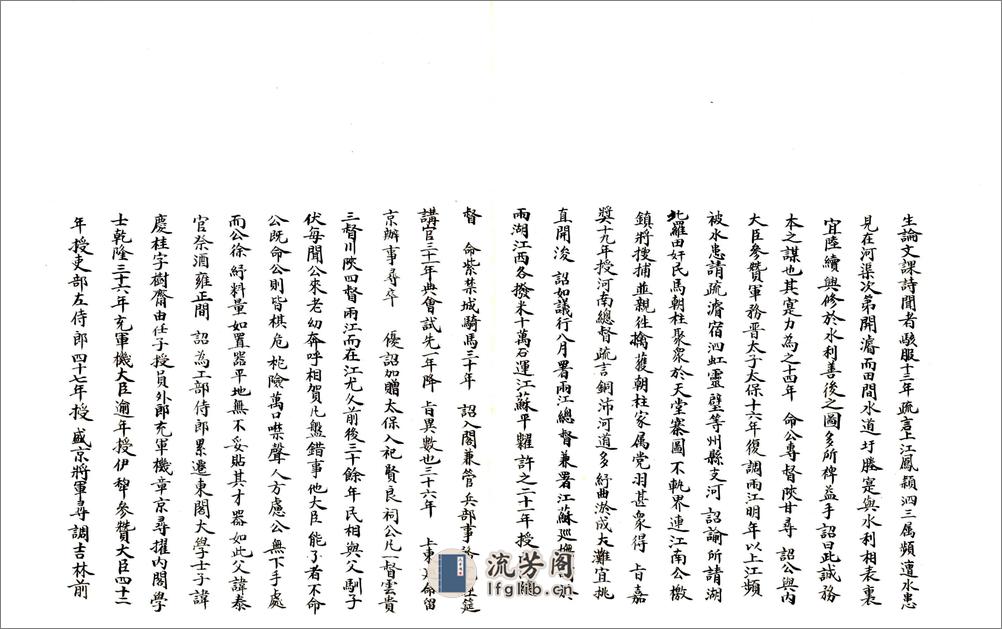 生論文課詩聞者駭服十三年疏言上江鳳潁泗三属頻遭水患
見在河渠次第開濬而田間水道圩塍寔與水利相表裏
宜陸續興修於水利善後之圖多所裨益手詔曰此誠務
本之謀也其寔力為之十四年 命公專督陝甘尋 詔公與內
大臣參贊軍務晋太子太保十六年復調兩江明年以上江頻
被水患請疏濬宿泗虹靈璧等州縣支河 詔諭所請湖
北羅田奸民馬朝柱聚衆於天堂寨圖不軌界連江南公檄
鎮將搜捕並親往擒獲朝柱家属党羽甚衆得 旨嘉
獎十九年授河南總督疏言銅沛河道多紆曲淤成大灘宜挑
直開浚 詔如議行八月署兩江總督兼署江蘇巡撫
兩湖江西各撥米十萬石運江蘇平糶許之二十一年授
督 命紫禁城騎馬三十年 詔入閣兼管兵部事 筵
講官三十一年典會試先一年降 旨異數也三十六年 上東 命留
京辦事尋卒 優詔加贈太保入祀賢良祠公凡一督雲貴
三督川陝四督兩江而在江尤久前後三十餘年民相與父馴子
伏每聞公來老幼奔呼相賀凡盤錯事他大臣 能了者不命
公既命公則皆棋危枰險萬口噤聲人方慮公無下手處
而公徐紆料量如置器平地無不妥貼其才器如此父諱泰
官祭酒雍正間 詔為工部侍郎累遷東閣大學士子諱
慶桂字樹齋由任子授員外郎充軍機章京尋擢內閣學
士乾隆三十六年充軍機大臣逾年授伊犂參贊大臣四十二
年授吏部左侍郎四十七年授 盛京將軍尋調吉林前
流芳阁
lfglib.com